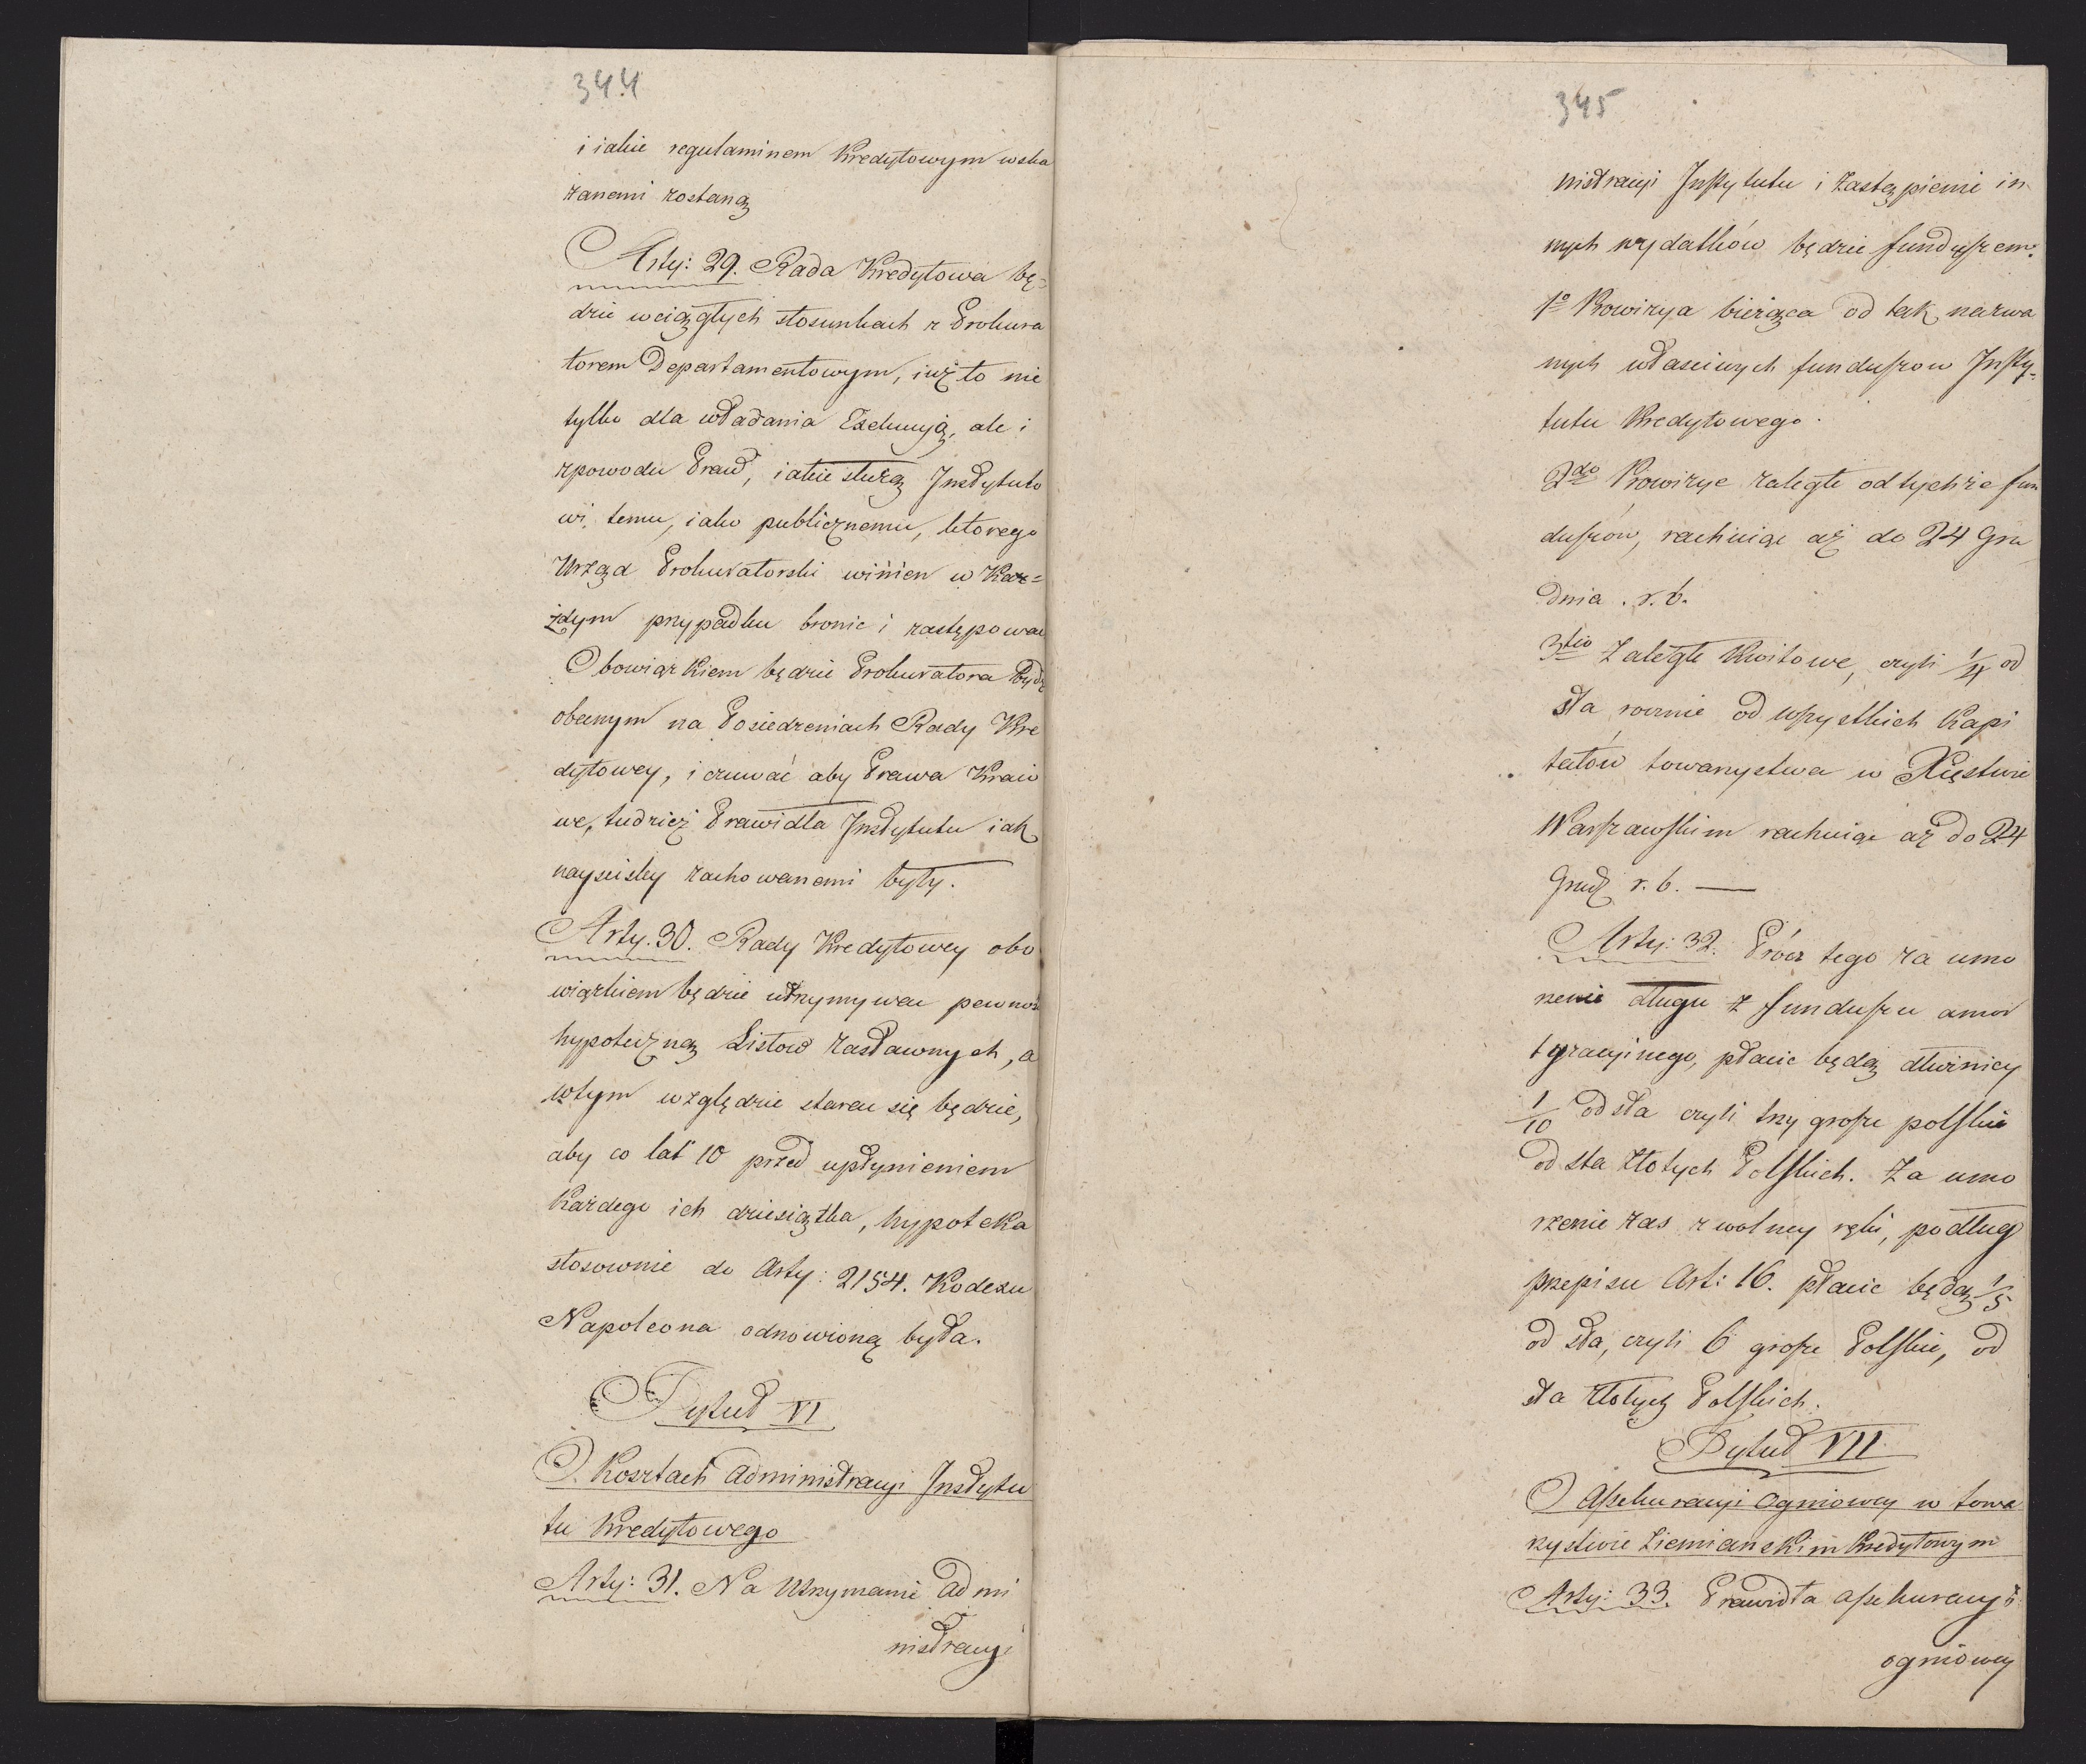 344
i iakie regulaminem Kredytowym wska
zanemi zostaną
Arty: 29. Rada Kredytowa bę=
dzie wciągłych stosunkach z Prokura
torem Departamentowym, iuż to nie
tylko dla władania Exekucyą, ale i
zpowodu Praw, iakie służą Instytuto
wi temu, iako publicznemu, ktorego
Urząd Prokuratorski winien w Kaz=
żdym przypadku bronic i zastępowac
Obowiązkiem będzie Prokuratora bydź
obecnym na Posiedzeniach Rady Kre
dytowey, i czuwać aby Prawa Kraio
we, tudzież Prawidła Instytutu iak
nayscisley zachowanemi były.
Arty. 30. Rady Kredytowey obo
wiązkiem będzie utrzymywac pewnos
hypoteczną Listow Zastawnych, a
wtym względzie starac się będzie,
aby co lat 10 przed upłynieniem
Każdego ich dziesiątka, hypoteka
stosownie do Arty: 2154. Kodexu
Napoleona odnowioną była.
Tytuł VI
O Kosztach Administracyi Instytu
tu Kredytowego
Arty: 31. Na Utrzymanie Admi
nistracyi
345
nistracyi Instytutu i zastąpienie in
nych wydatków będzie funduszem:
1o Prowizya bieżąca od tak nazwa
nych własciwych funduszow Insty=
tutu Kredytowego.
2do Prowizye zaległe odtychże fun
duszów, rachuiąc aż do 24 Gru
dnia r. b.
3tio Zaległe Kwitowe, czyli 1/4 od
sta rocznie od wszystkich Kapi
tałów towarzystwa w Xięstwie
Warszawskim rachuiąc aż do 24
Grud r. b. —
Arty: 32. Prócz tego za umo
rzenie długu z funduszu amor
tyzacyinego, płacic będą dłużnicy
1/10 od sta czyli trzy grosze polskie
od sta złotych Polskich. Za umo
rzenie zas z wolney ręki, podług
przepisu Art: 16. płacic będą 1/5
od sta, czyli 6 grosze Polskie, od
sta złotych Polskich.
Tytuł VII
O Assekuracyi Ogniowey w towa
rzystwie Ziemianskim Kredytowym
Arty: 33. Prawidła assekuracyi
ogniowey